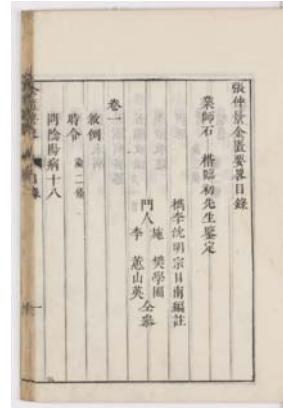 張仲景金匱要畧目錄
業師石 楷臨初先生鉴定
檇李沈明宗目南編註
門人 施 樊學圃
李 蕙山英 仝叅
卷一
敘例
時令 論二條
問陰陽病十八